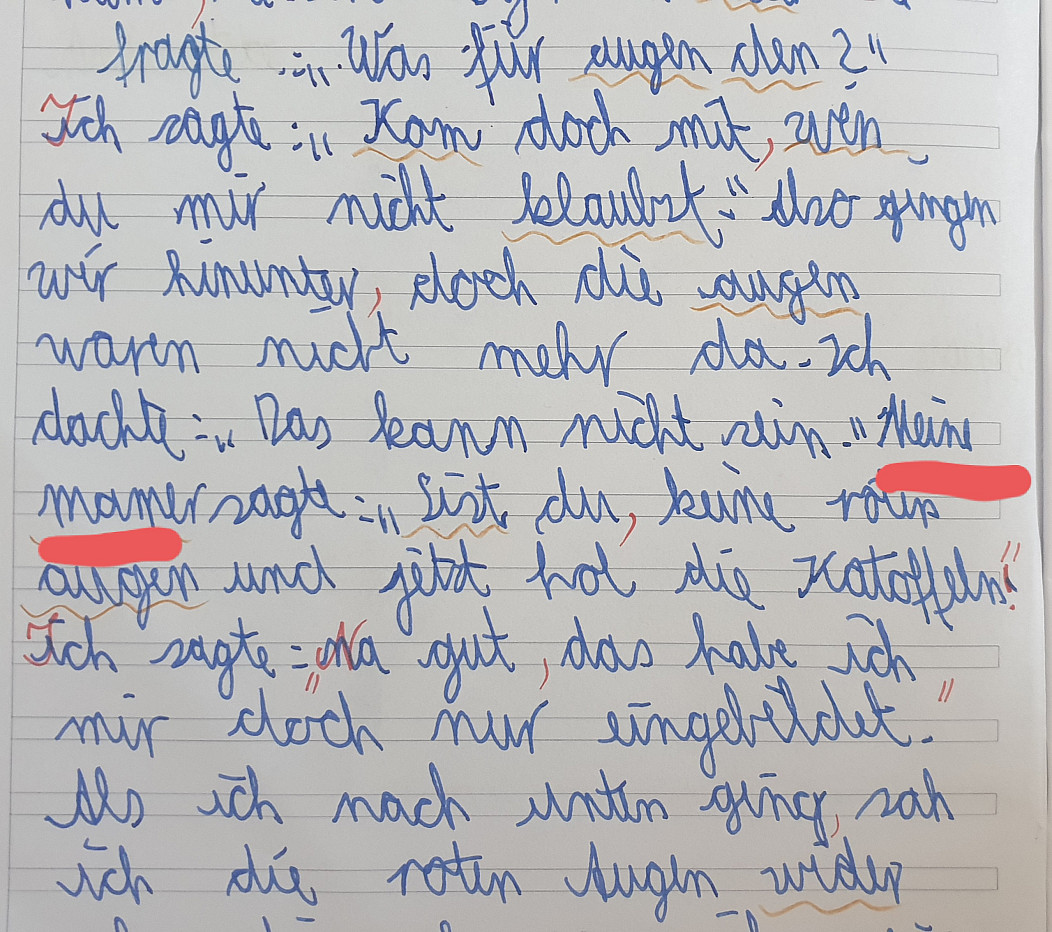 fragte :„Was für augen den?"
Ich sagte :„Kom doch mit, wen
du mir nicht klaubst." Also gingen
wir hinunter, doch die augen
waren nicht mehr da. Ich
dachte :„Das kann nicht sein." Meine
mamer sagte :„Sist du, keine roten
augen und jetzt hol die Katoffeln!"
Ich sagte :„Na gut, das habe ich
mir doch nur eingebildet."
Als ich nach unten ging, sah
ich die roten Augen wider